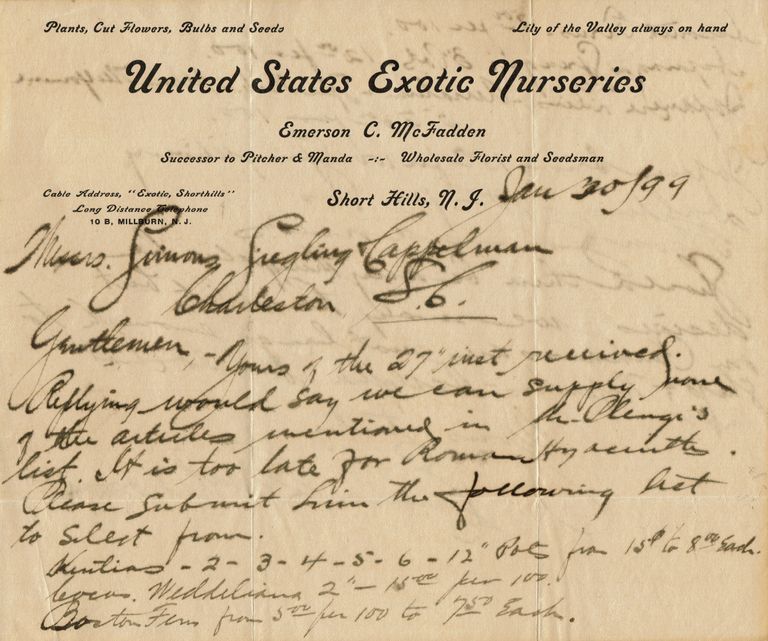 Plants, Cut Flowers, Bulbs and Seeds
Lily of the Valley always on hand
United States Exotic Nurseries
Emerson C. McFadden
Successor to Pitcher & Manda -:- Wholesale Florist and Seedsman
Cable Address, "Exotic, Shorthills"
Long Distance Telephone
10 B, MILLBURN, N. J.
Short Hills, N. J. Jan 30/99
Messrs. Simons Siegling Cappelman
Charleston S.C.
Gentlemen,- Yours of the 27" inst received.
Replying would say we can supply none
of the articles mentioned in
list. It is too late for Roman Hyacinths.
Please submit him the following list
to select from.
Kentias - 2 - 3 - 4 - 5 - 6 - 12" Pots from 15¢ to 8.00 Each.
Cocos. Weddeliana 2" - 15.00 per 100.
Boston Ferns from 5.00 per 100 to 7.50 Each.